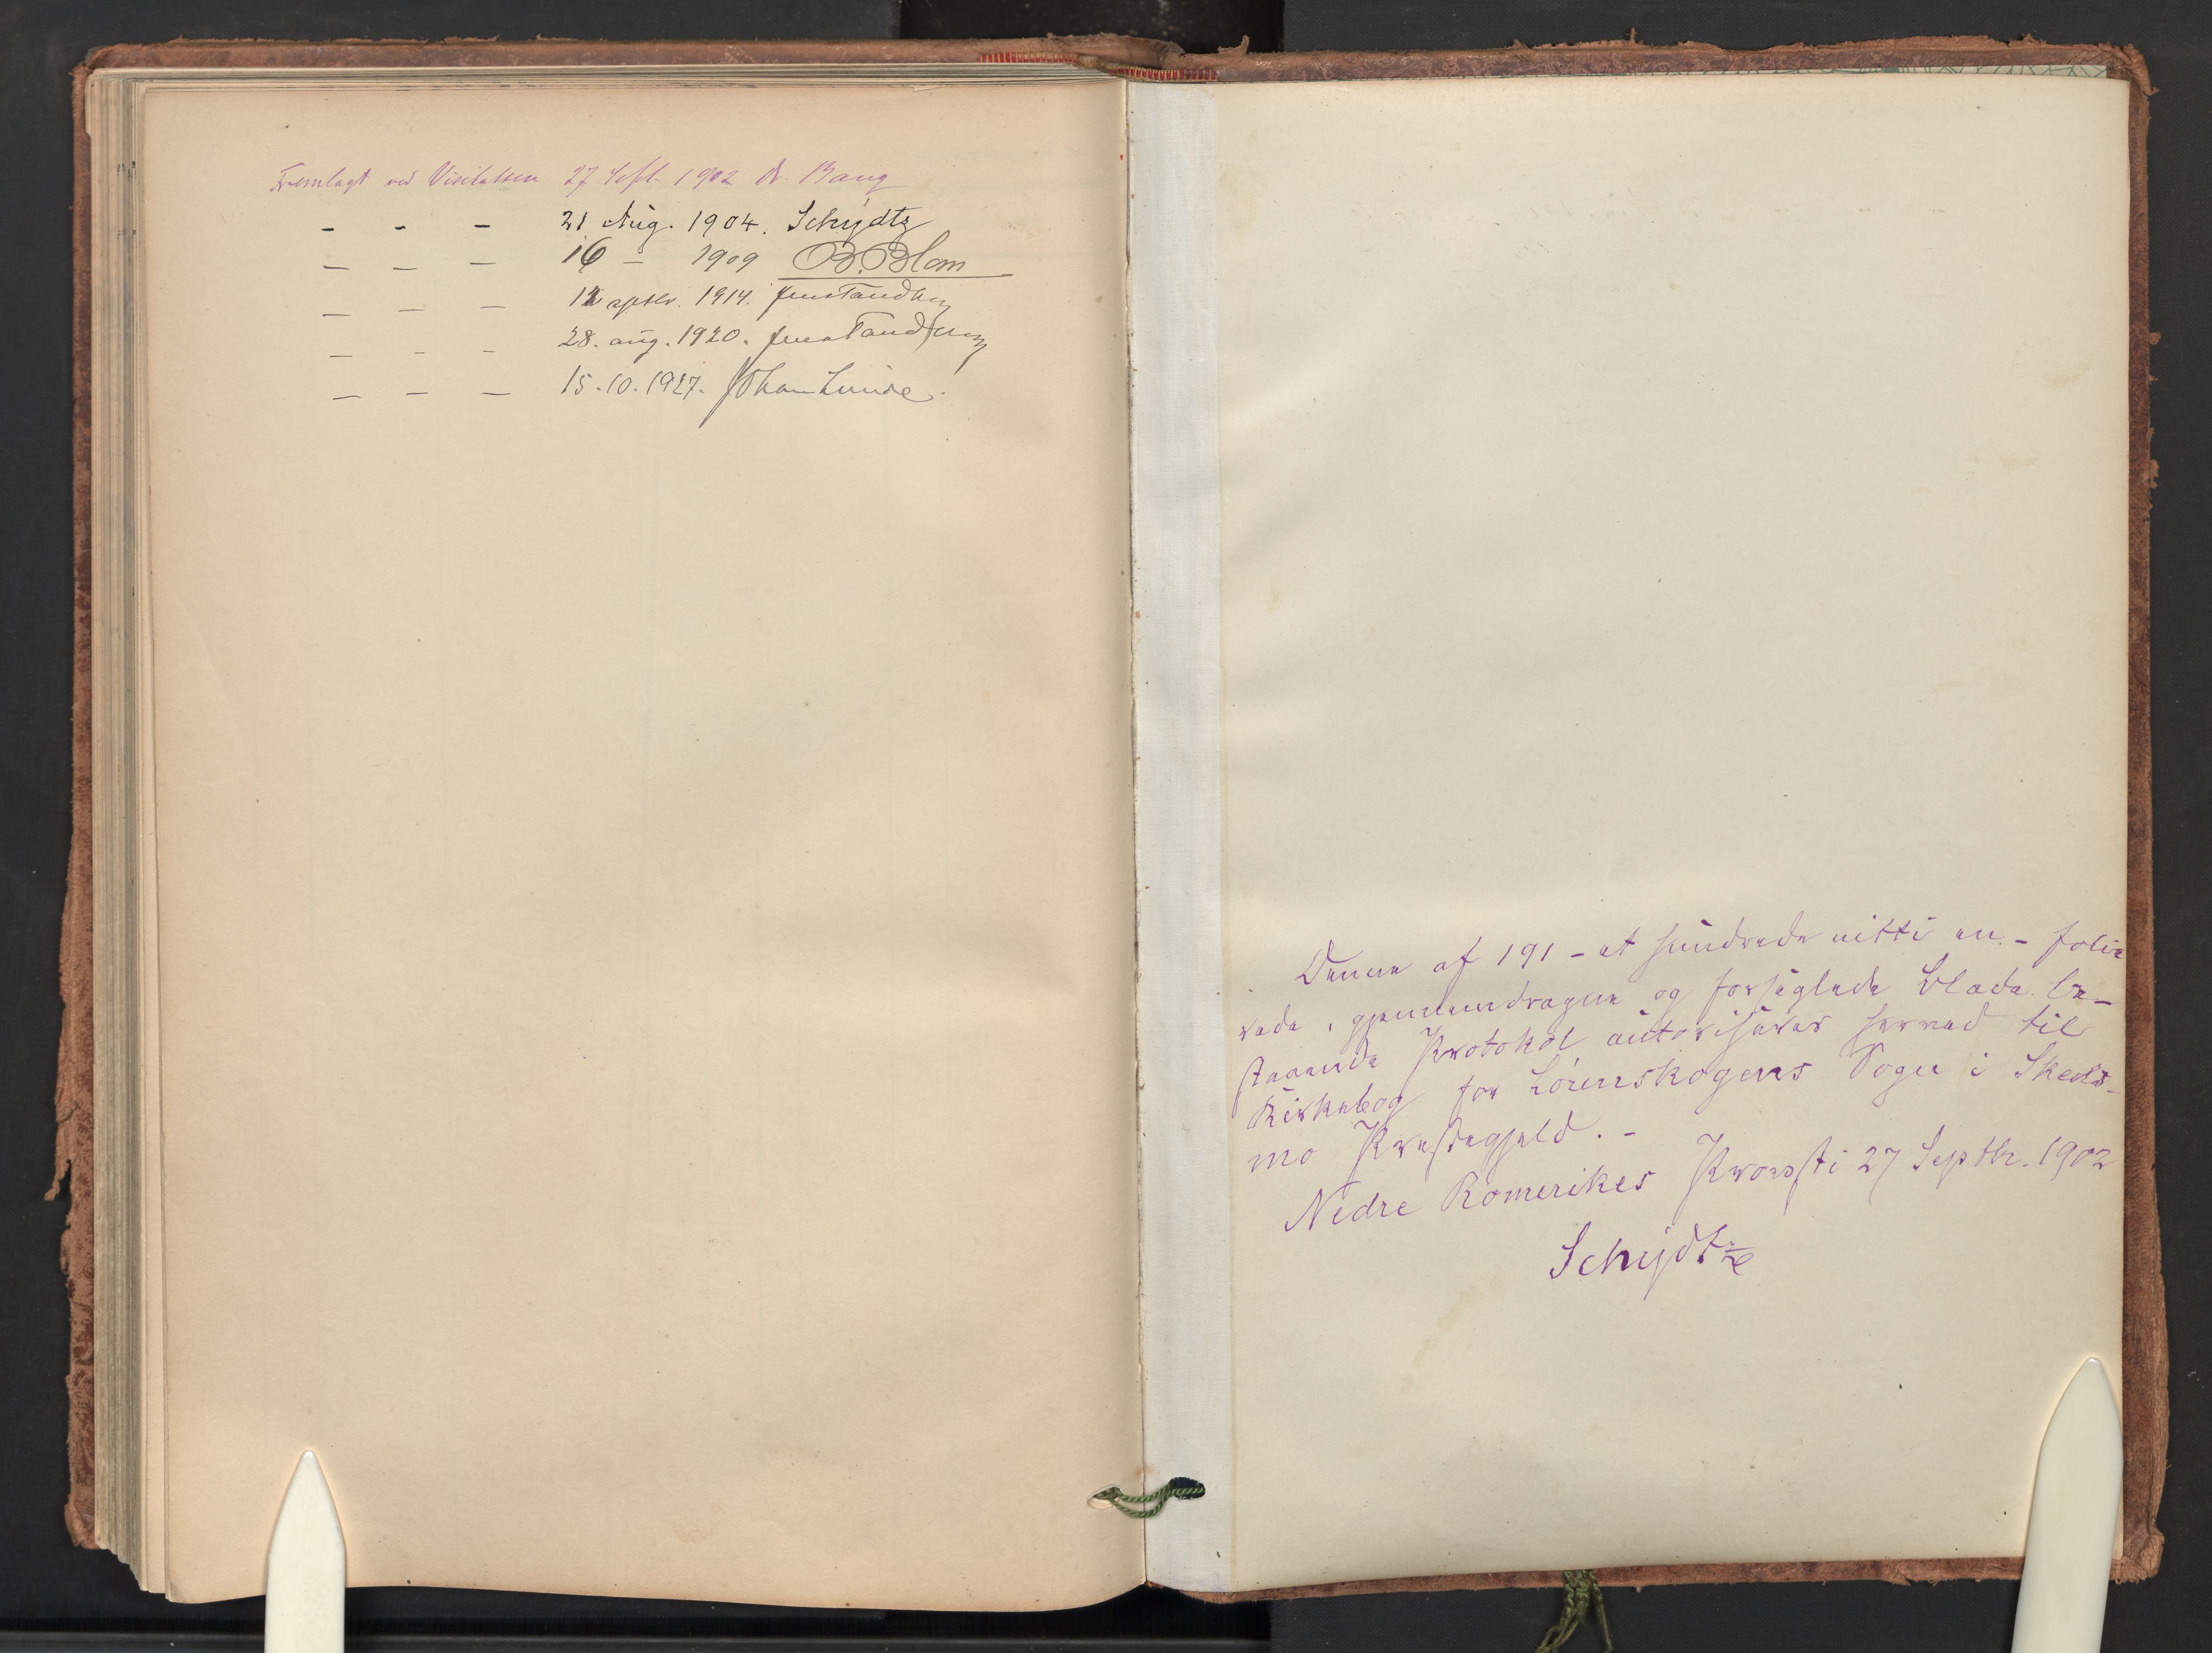 Fremlagt ved Visitatsen 27 Sept. 1902 Dr. Bang
- - - 21 Aug. 1904. Schydtz
— — — 16 — 1909 B. Blom
— — — 12 septbr. 1914. Jens Tandberg
— - - 28. aug. 1920. Jens Tandberg
— — — 15.10.1927. Johan Lunde.
Denne af 191 - et hundrede nitti en - folie
rede, gjennemdragne og forseglede Blade be-
staaende Protokol autoriseres herved til
Kirkebog for Lørenskogens Sogn i Skeds-
mo Præstegjeld. -
Nedre Romerikes Provsti 27 Septbr. 1902
Schydtz